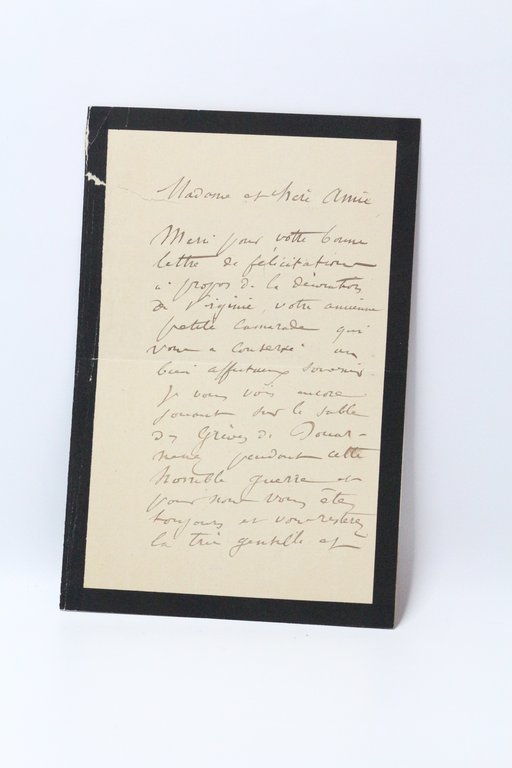 Madame et chère Amie
Merci pour votre bonne
lettre de félicitation
à propos de la décoration
de Virginie, votre ancienne
petite camarade qui
vous a conservé un
bien affectueux souvenir.
Je vous vois encore
jouant sur le sable
des Grèves de Douar-
nenez pendant cette
horrible guerre et
pour nous vous êtes
toujours et vous resterez
la très gentille et